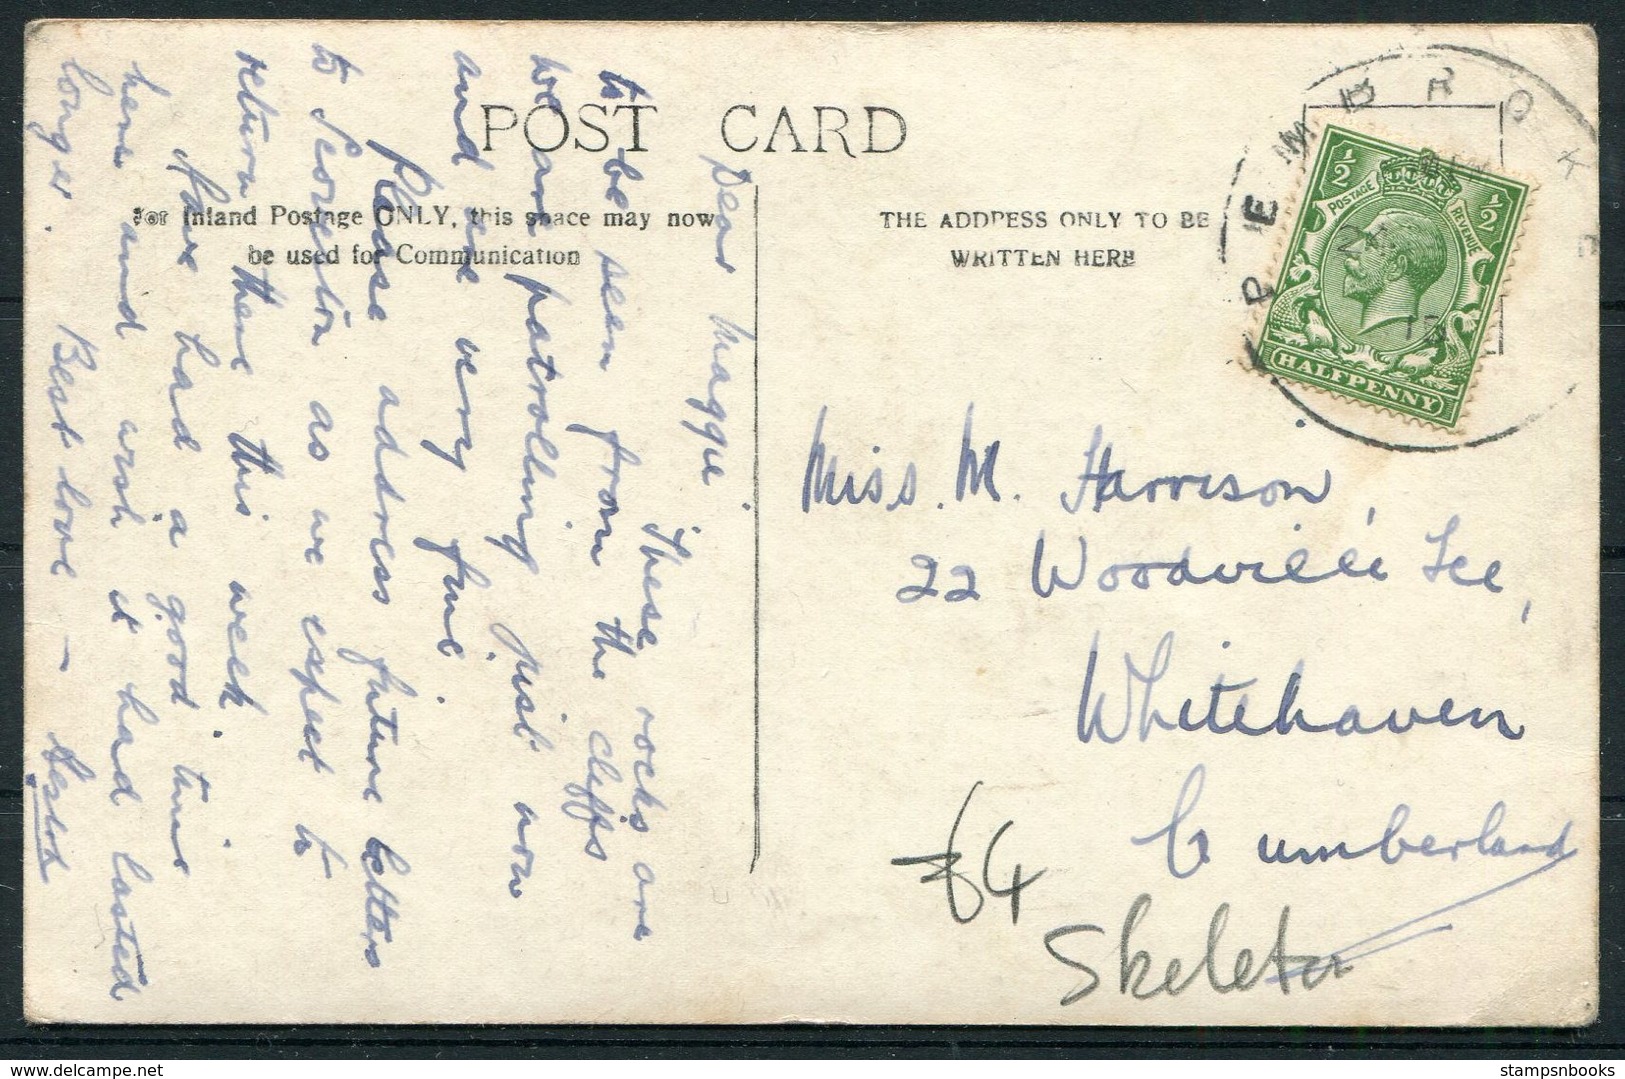 POST CARD
For Inland Postage ONLY, this space may now
be used for Communication
THE ADDRESS ONLY TO BE
WRITTEN HERE
Dear Maggie
These rocks are
to be seen from the cliffs
we are patrolling just now
and are very fine.
Please address future letters
to as we expect to
return there this week.
Have had a good time
here and wish it had lasted
longer. Best love –
PEMBROKE
½ ½
POSTAGE REVENUE
HALFPENNY
Miss. M. Harrison,
22 Woodville Tce,
Whitehaven
Cumberland
£4
Skeleton
stampsnbooks